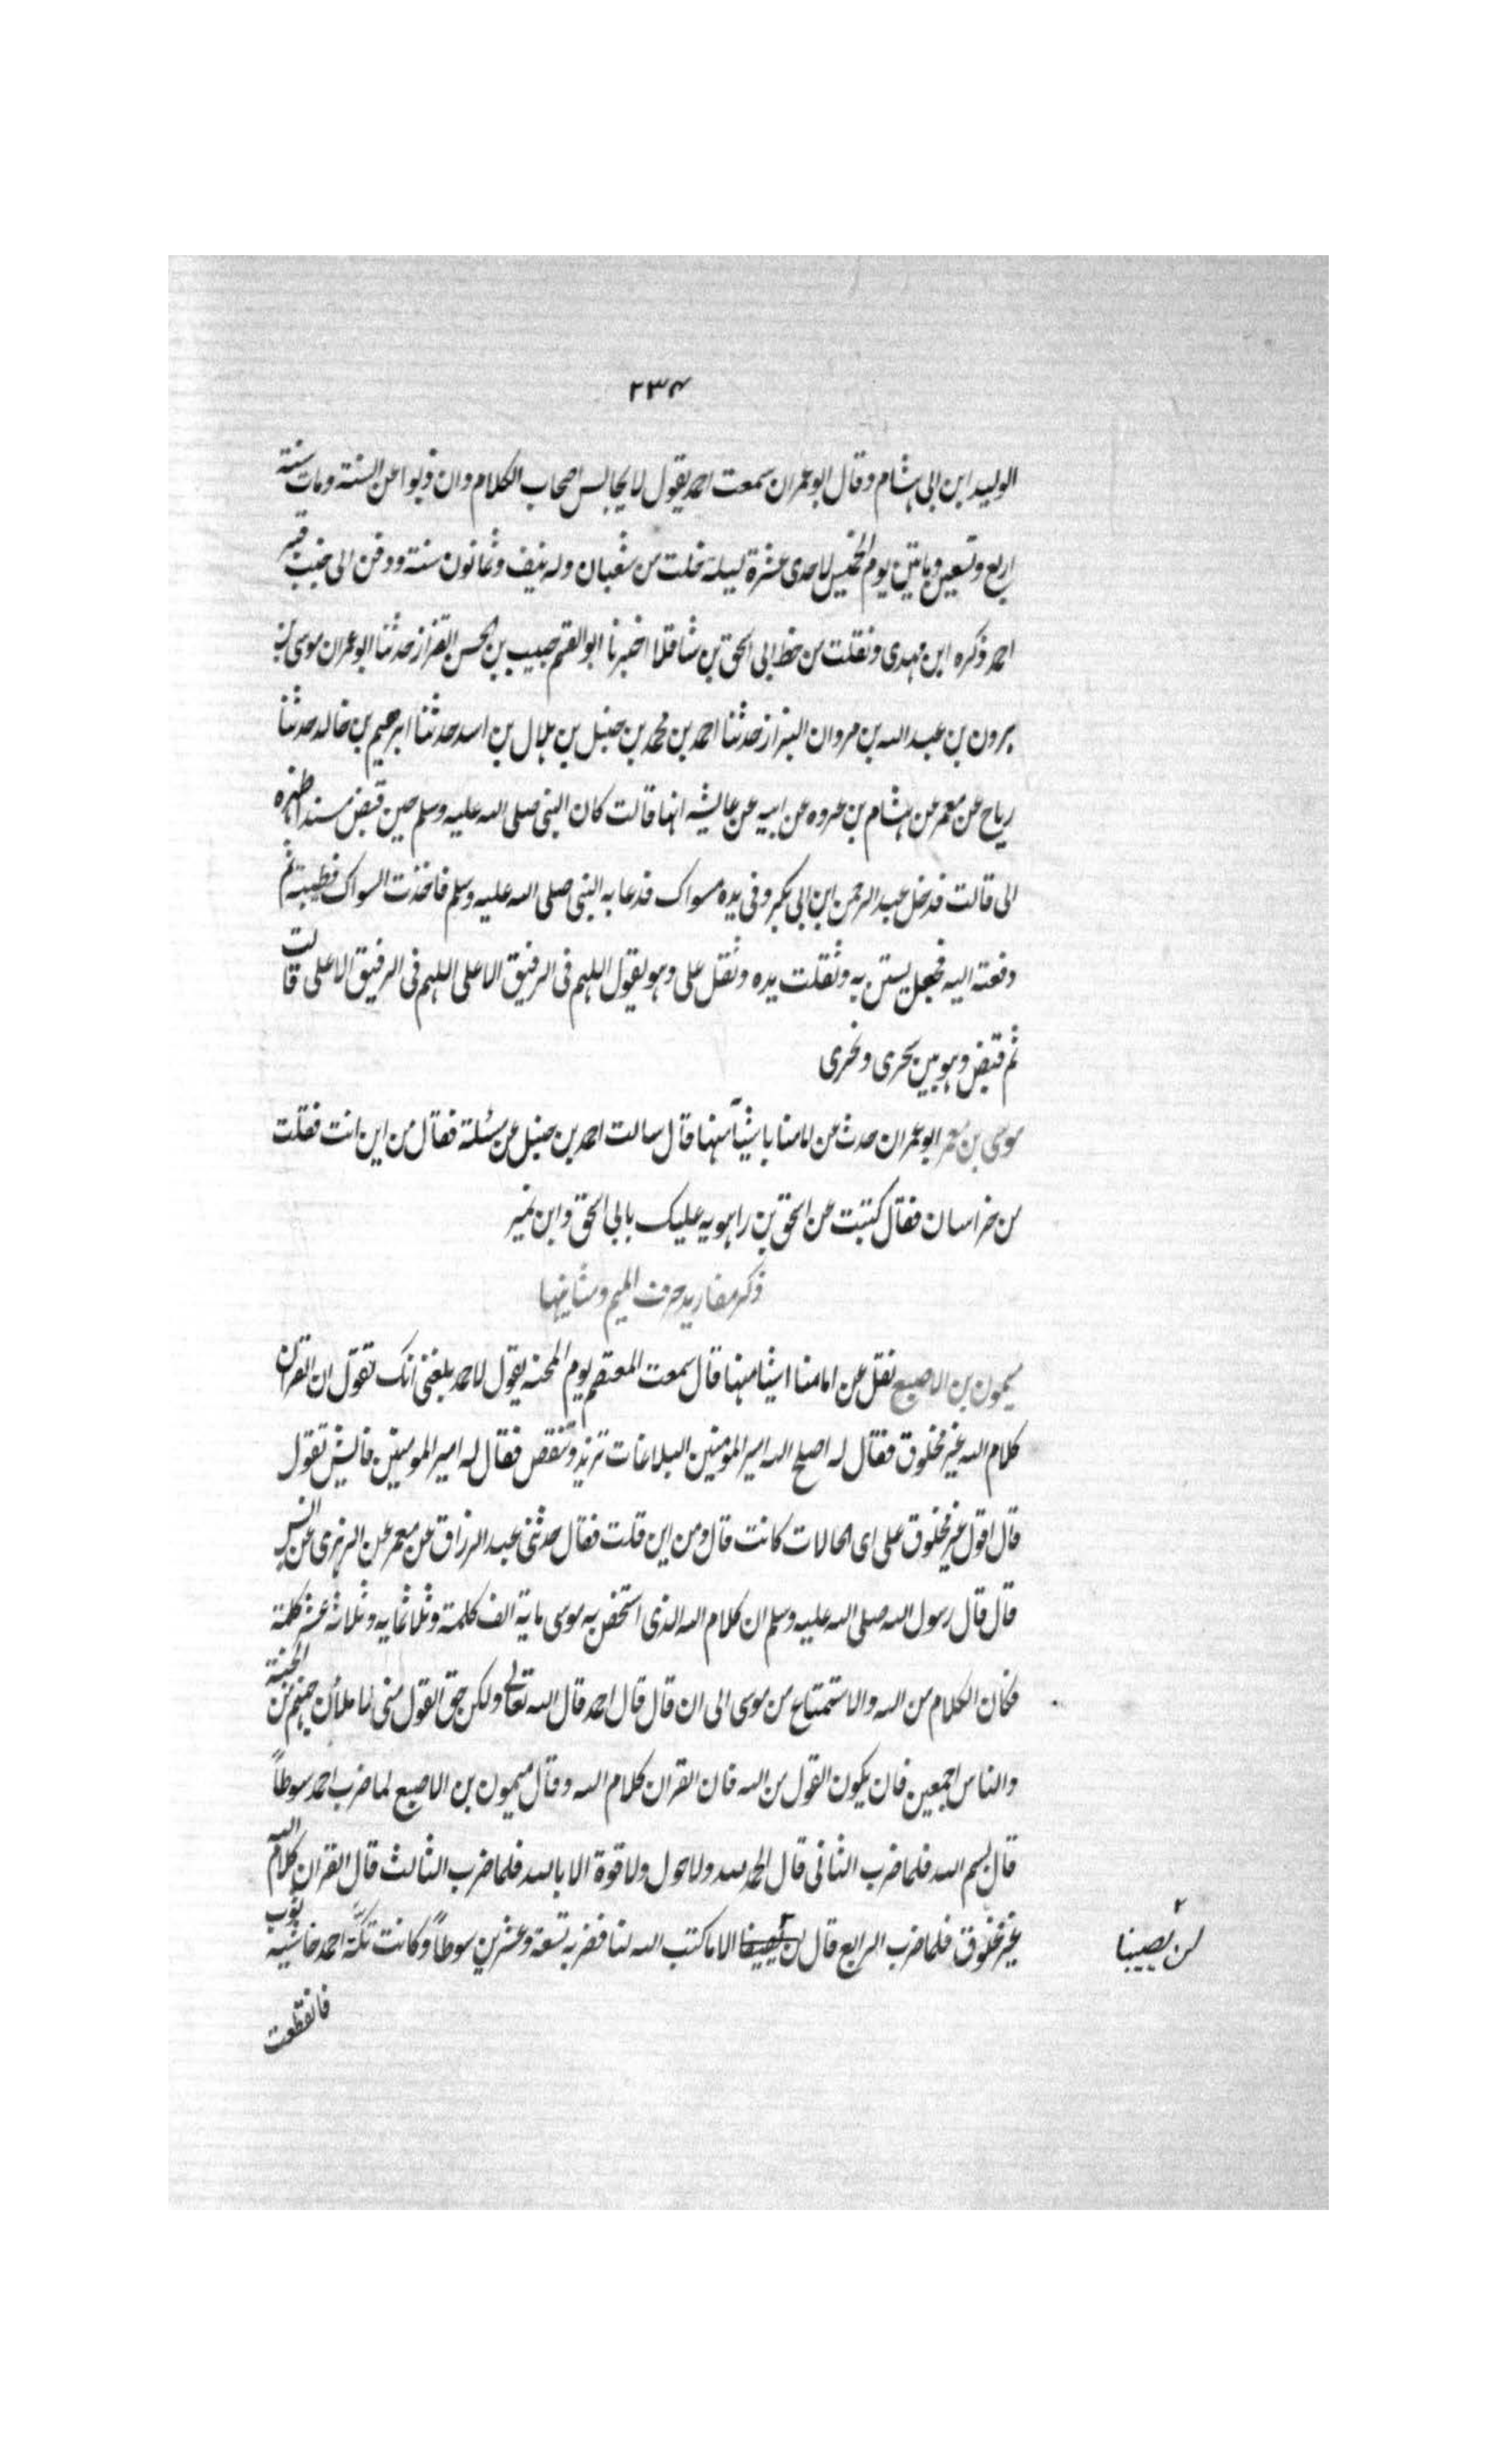 ٢٣٤
الوليد ابن ابى هشام وقال ابو عمران سمعت احمد يقول لا يجالس اصحاب الكلام وان ذبوا عن السنة ومات سنة
اربع وتسعين وماتين يوم الخميس لاحدى عشرة ليلة خلت من شعبان وله نيف وثمانون سنة ودفن الى جنب قبر
احمد ذكره ابن مهدى ونقلت من خط ابى اسحق بن شاقلا اخبرنا ابو القسم حبيب بن الحسن القزاز حدثنا ابو عمران موسى بن
هرون بن عبد الله بن مروان البزاز حدثنا احمد بن محمد بن حنبل بن هلال بن اسد حدثنا ابرهيم بن خالد حدثنا
رباح عن معمر عن هشام بن عروه عن ابيه عن عايشه انها قالت كان النبى صلى الله عليه وسلم حين قبض مسندا ظهره
الى قالت فدخل عبد الرحمن ابن ابى بكر وفى يده مسواك فدعا به النبى صلى الله عليه وسلم فاخذت السواك فطيبته ثم
دفعته اليه فجعل يستن به وثقلت يده وثقل على وهو يقول اللهم فى الرفيق الاعلى اللهم فى الرفيق الاعلى قالت
ثم قبض وهو بين سحرى ونحرى
موسى بن معمر ابو عمران حدث عن امامنا باشيآء منها قال سالت احمد بن حنبل عن مسئلة فقال من اين انت فقلت
من خراسان فقال كتبت عن اسحق بن راهويه عليك بابى اسحق وابن نمير
ذكر مفاريد حرف الميم ومثانيها
ميمون بن الاصبغ نقل عن امامنا اشيا منها قال سمعت المعتصم يوم المحنه يقول لاحمد بلغنى انك تقول ان القران
كلام الله غير مخلوق فقال له اصلح الله امير المومنين البلاغات تزيد وتنقص فقال له امير المومنين فايش تقول
قال اقول غير مخلوق على اى الحالات كانت قال ومن اين قلت فقال حدثنى عبد الرزاق عن معمر عن الزهرى عن انس
قال قال رسول الله صلى الله عليه وسلم ان كلام الله الذى استخص به موسى ماية الف كلمة وثلاثمايه وثلاثه عشر كلمة
فكان الكلام من الله والاستمتاع من موسى الى ان قال قال احمد قال الله تعالى ولكن حق القول منى لاملأن جهنم من الجنة
والناس اجمعين فان يكون القول من الله فان القران كلام الله وقال ميمون بن الاصبغ لما ضرب احمد سوطاً
قال بسم الله فلما ضرب الثانى قال الحمد لله ولا حول ولا قوة الا بالله فلما ضرب الثالث قال القران كلام الله
غير مخلوق فلما ضرب الرابع قال لن يصيبنا الا ما كتب الله لنا فضربه تسعة وعشرين سوطاً وكانت تكة احمد حاشية ثوب
٢
لن يصيبنا
فانقطعت